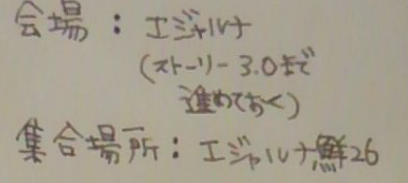 会場：エジャルナ
(ストーリー3.0まで
進めておく)
集合場所：エジャルナ鮮26